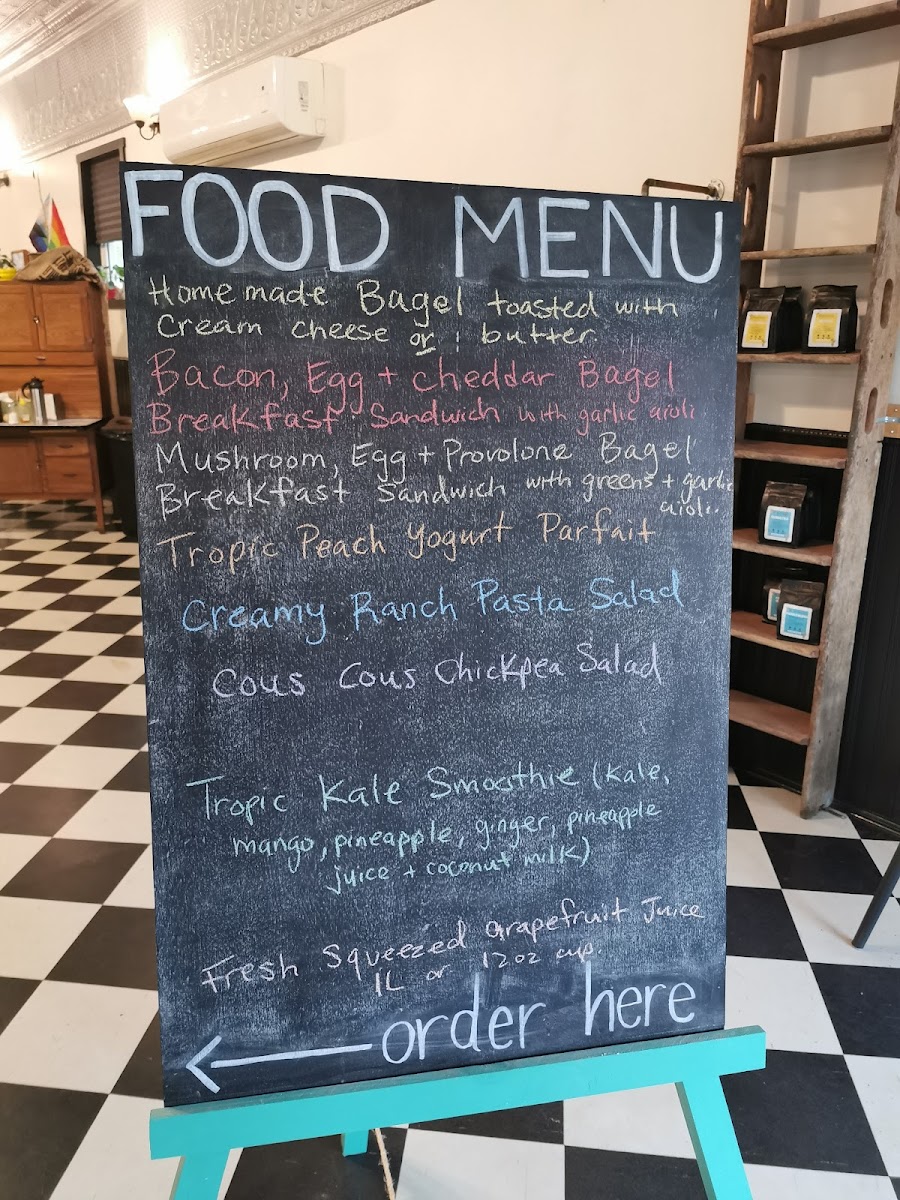 FOOD MENU
Homemade Bagel toasted with
Cream cheese or butter.
Bacon, Egg + cheddar Bagel
Breakfast Sandwich with garlic aioli.
Mushroom, Egg + Provolone Bagel
Breakfast Sandwich with greens + garlic
aioli.
Tropic Peach Yogurt Parfait
Creamy Ranch Pasta Salad
Cous Cous Chickpea Salad
Tropic Kale Smoothie (Kale,
mango, pineapple, ginger, pineapple
juice + coconut milk)
Fresh Squeezed Grapefruit Juice
1L or 12oz cup.
order here